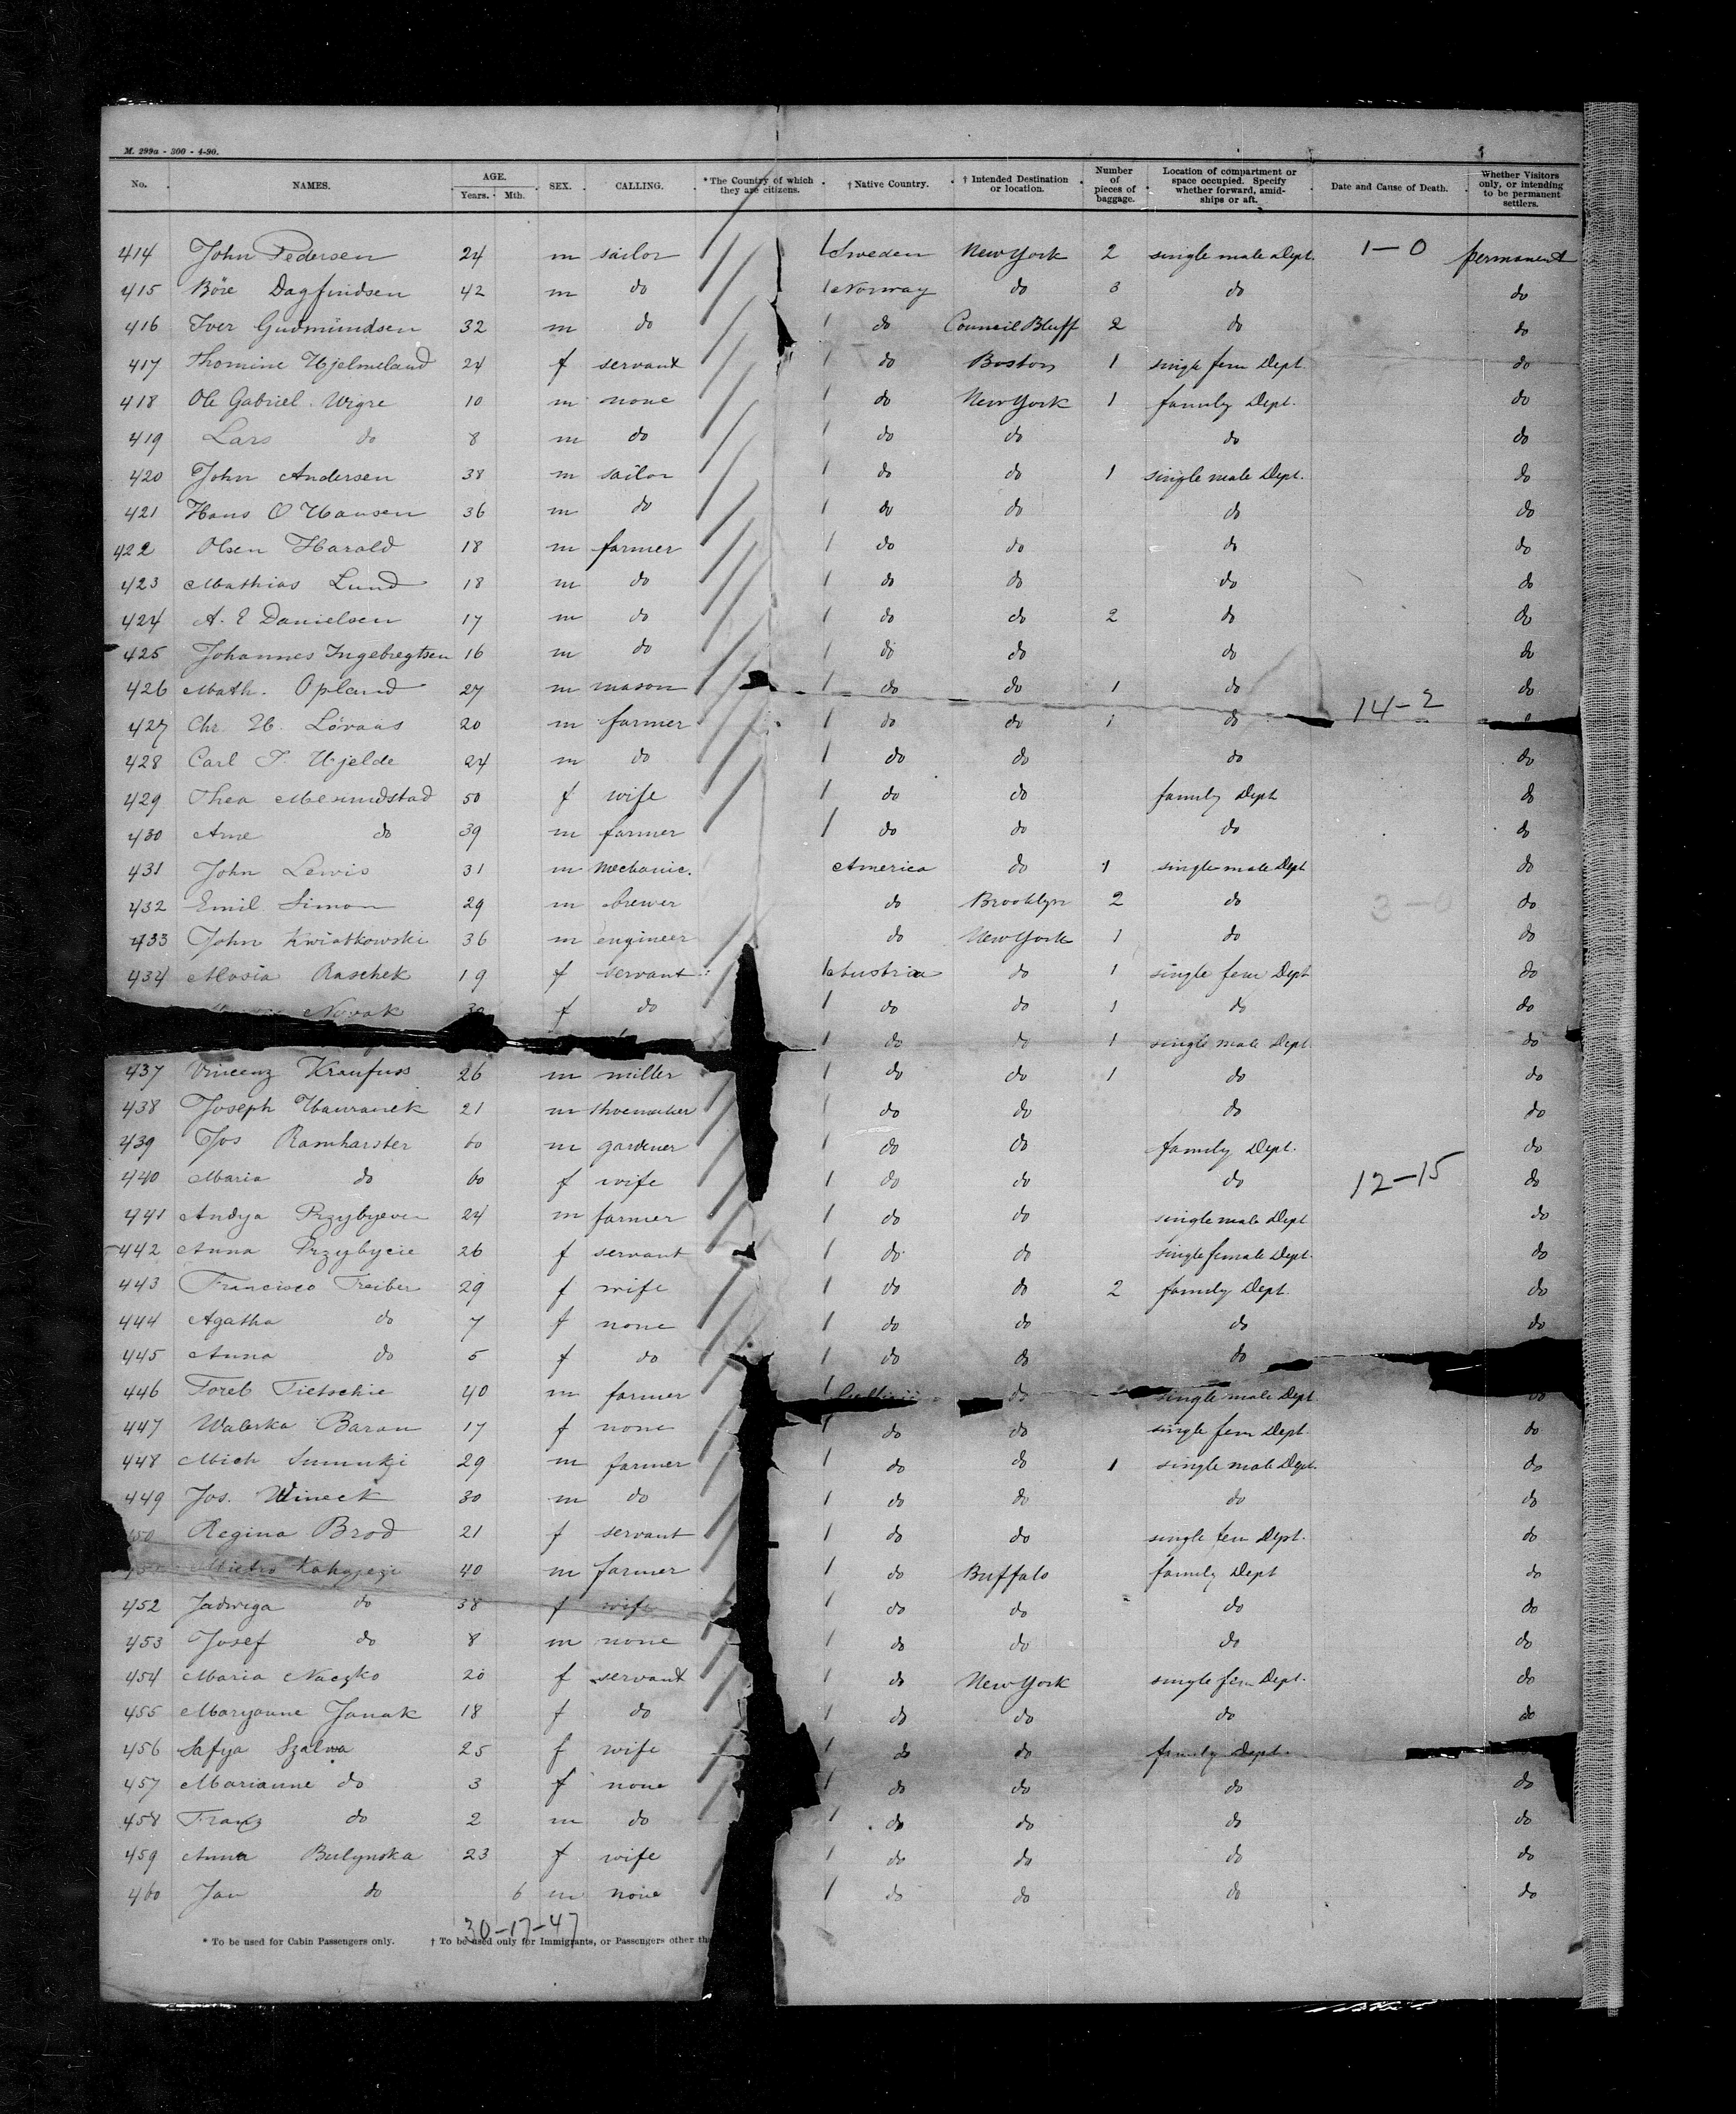 M. 299a - 300 - 4-90.
No. NAMES. AGE. Years. Mth. SEX. CALLING. * The Country of which they are citizens. † Native Country. † Intended Destination or location. Number of pieces of baggage. Location of compartment or space occupied. Specify whether forward, amidships or aft. Date and Cause of Death. Whether Visitors only, or intending to be permanent settlers.
414 John Pedersen 24 m sailor 1 Sweden New York 2 single male Dept. 1-0 permanent
415 Böre Dagfindsen 42 m do 1 Norway do 3 do do
416 Iver Gudmündsen 32 m do 1 do Council Bluff 2 do do
417 Thomine Hjelmeland 24 f servant 1 do Boston 1 single fem Dept. do
418 Ole Gabriel Wigre 10 m none 1 do New York 1 family Dept. do
419 Lars do 8 m do 1 do do do do
420 John Andersen 38 m sailor 1 do do 1 single male Dept. do
421 Hans O Hansen 36 m do 1 do do do do
422 Olsen Harald 18 m farmer 1 do do do do
423 Mathias Lund 18 m do 1 do do do do
424 A. E Danielsen 17 m do 1 do do 2 do do
425 Johannes Ingebregtsen 16 m do 1 do do do do
426 Math. Opland 27 m mason 1 do do 1 do do
14-2
427 Chr. H. Lövaas 20 m farmer 1 do do 1 do
428 Carl T. Hjelde 24 m do 1 do do do do
429 Thea 50 f wife 1 do do family Dept do
430 Arne do 39 m farmer 1 do do do do
431 John Lewis 31 m mechanic. America do 1 single male Dept do
432 Emil Simon 29 m brewer do Brooklyn 2 do 3-0 do
433 John Kwiatkowski 36 m engineer do New York 1 do do
434 Raschek 19 f servant 1 Austria do 1 single fem Dept do
Novak f do 1 do do 1 do do
1 do do 1 single male Dept do
437 Vincenz Kraufuss 26 m miller 1 do do 1 do do
438 Joseph Hawranek 21 m shoemaker 1 do do do do
439 Jos Ramharster 60 m gardener 1 do do family Dept. do
440 Maria do 60 f wife 1 do do do 12-15 do
441 Andya 24 m farmer 1 do do single male Dept do
442 Anna Przybycie 26 f servant 1 do do single female Dept. do
443 Francisco Treiber 29 f wife 1 do do 2 family Dept. do
444 Agatha do 7 f none 1 do do do do
445 Anna do 5 f do 1 do do do
446 Toreb Tietschie 40 m farmer 1 do single male Dept. do
447 Walerka Baran 17 f none 1 do do single fem Dept. do
448 Mich 29 m farmer 1 do do 1 single male Dept. do
449 Jos. Wineck 30 m do 1 do do do do
Regina Brod 21 f servant 1 do do single fem Dept. do
40 m farmer 1 do Buffalo family Dept do
452 Jadwiga do 38 f wife 1 do do do do
453 Josef do 8 m none 1 do do do do
454 Maria Naczko 20 f servant 1 do New York single fem Dept. do
455 Maryanne Janak 18 f do 1 do do do do
456 Safya Szalwa 25 f wife 1 do do family Dept.
457 Marianne do 3 f none 1 do do do do
458 Franz do 2 m do 1 do do do do
459 Anna Bulynska 23 f wife 1 do do do do
460 Jan do 6 m none 1 do do do do
30-17-47
* To be used for Cabin Passengers only. † To be used only for Immigrants, or Passengers other th